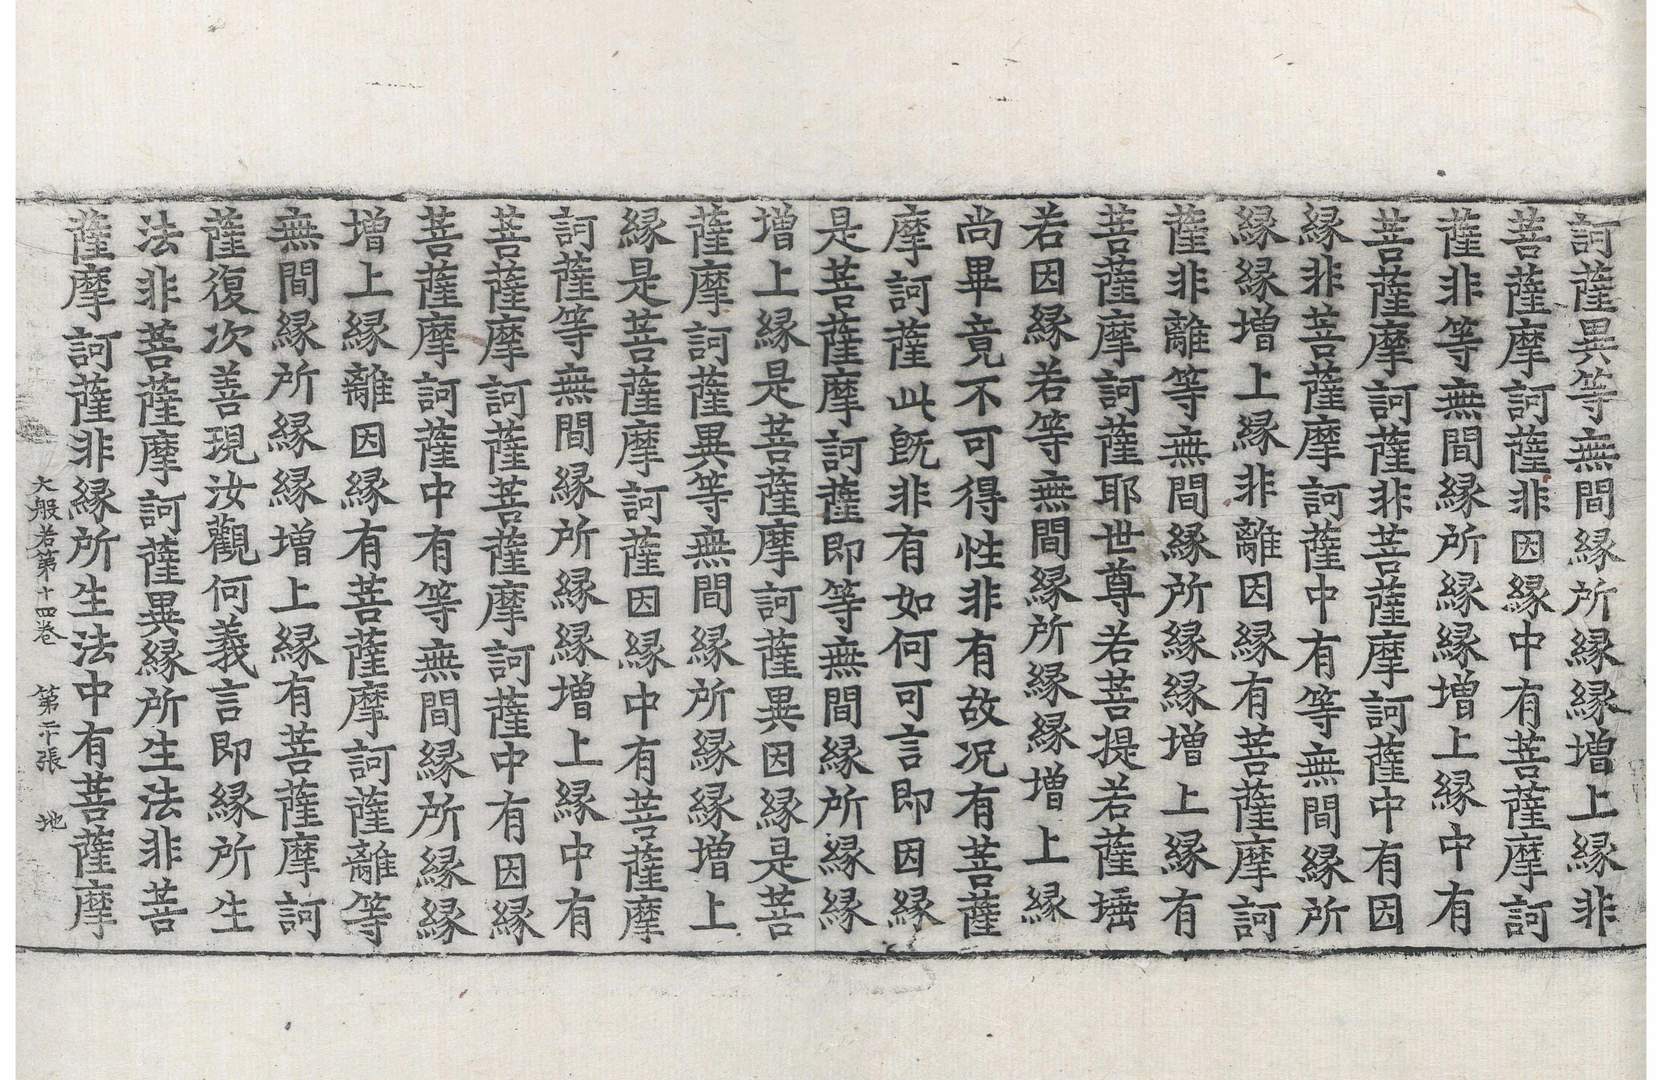 訶薩異等無間縁所縁縁增上縁非
菩薩摩訶薩非因縁中有菩薩摩訶
薩非等無間縁所縁縁增上縁中有
菩薩摩訶薩非菩薩摩訶薩中有因
縁非菩薩摩訶薩中有等無間縁所
縁縁增上縁非離因縁有菩薩摩訶
薩非離等無間縁所縁縁增上縁有
菩薩摩訶薩耶世尊若菩提若薩埵
若因縁若等無間縁所縁縁增上縁
尚畢竟不可得性非有故况有菩薩
摩訶薩此旣非有如何可言即因縁
是菩薩摩訶薩即等無間縁所縁縁
增上縁是菩薩摩訶薩異因縁是菩
薩摩訶薩異等無間縁所縁縁增上
縁是菩薩摩訶薩因縁中有菩薩摩
訶薩等無間縁所縁縁增上縁中有
菩薩摩訶薩菩薩摩訶薩中有因縁
菩薩摩訶薩中有等無間縁所縁縁
增上縁離因縁有菩薩摩訶薩離等
無間縁所縁縁增上縁有菩薩摩訶
薩復次善現汝觀何義言即縁所生
法非菩薩摩訶薩異縁所生法非菩
薩摩訶薩非縁所生法中有菩薩摩
大般若第十四卷 第二十張 地